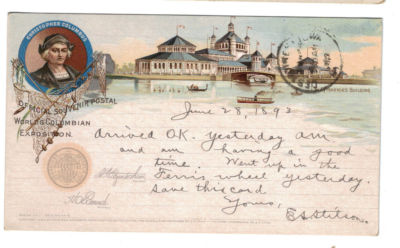 CHRISTOPHER COLUMBUS
OFFICIAL SOUVENIR POSTAL
WORLD'S COLUMBIAN
EXPOSITION.
FISHERIES BUILDING
June 28, 1893
Arrived O.K. yesterday am
and am having a good
time. Went up in the
Ferris wheel yesterday.
Save this card
Yours,